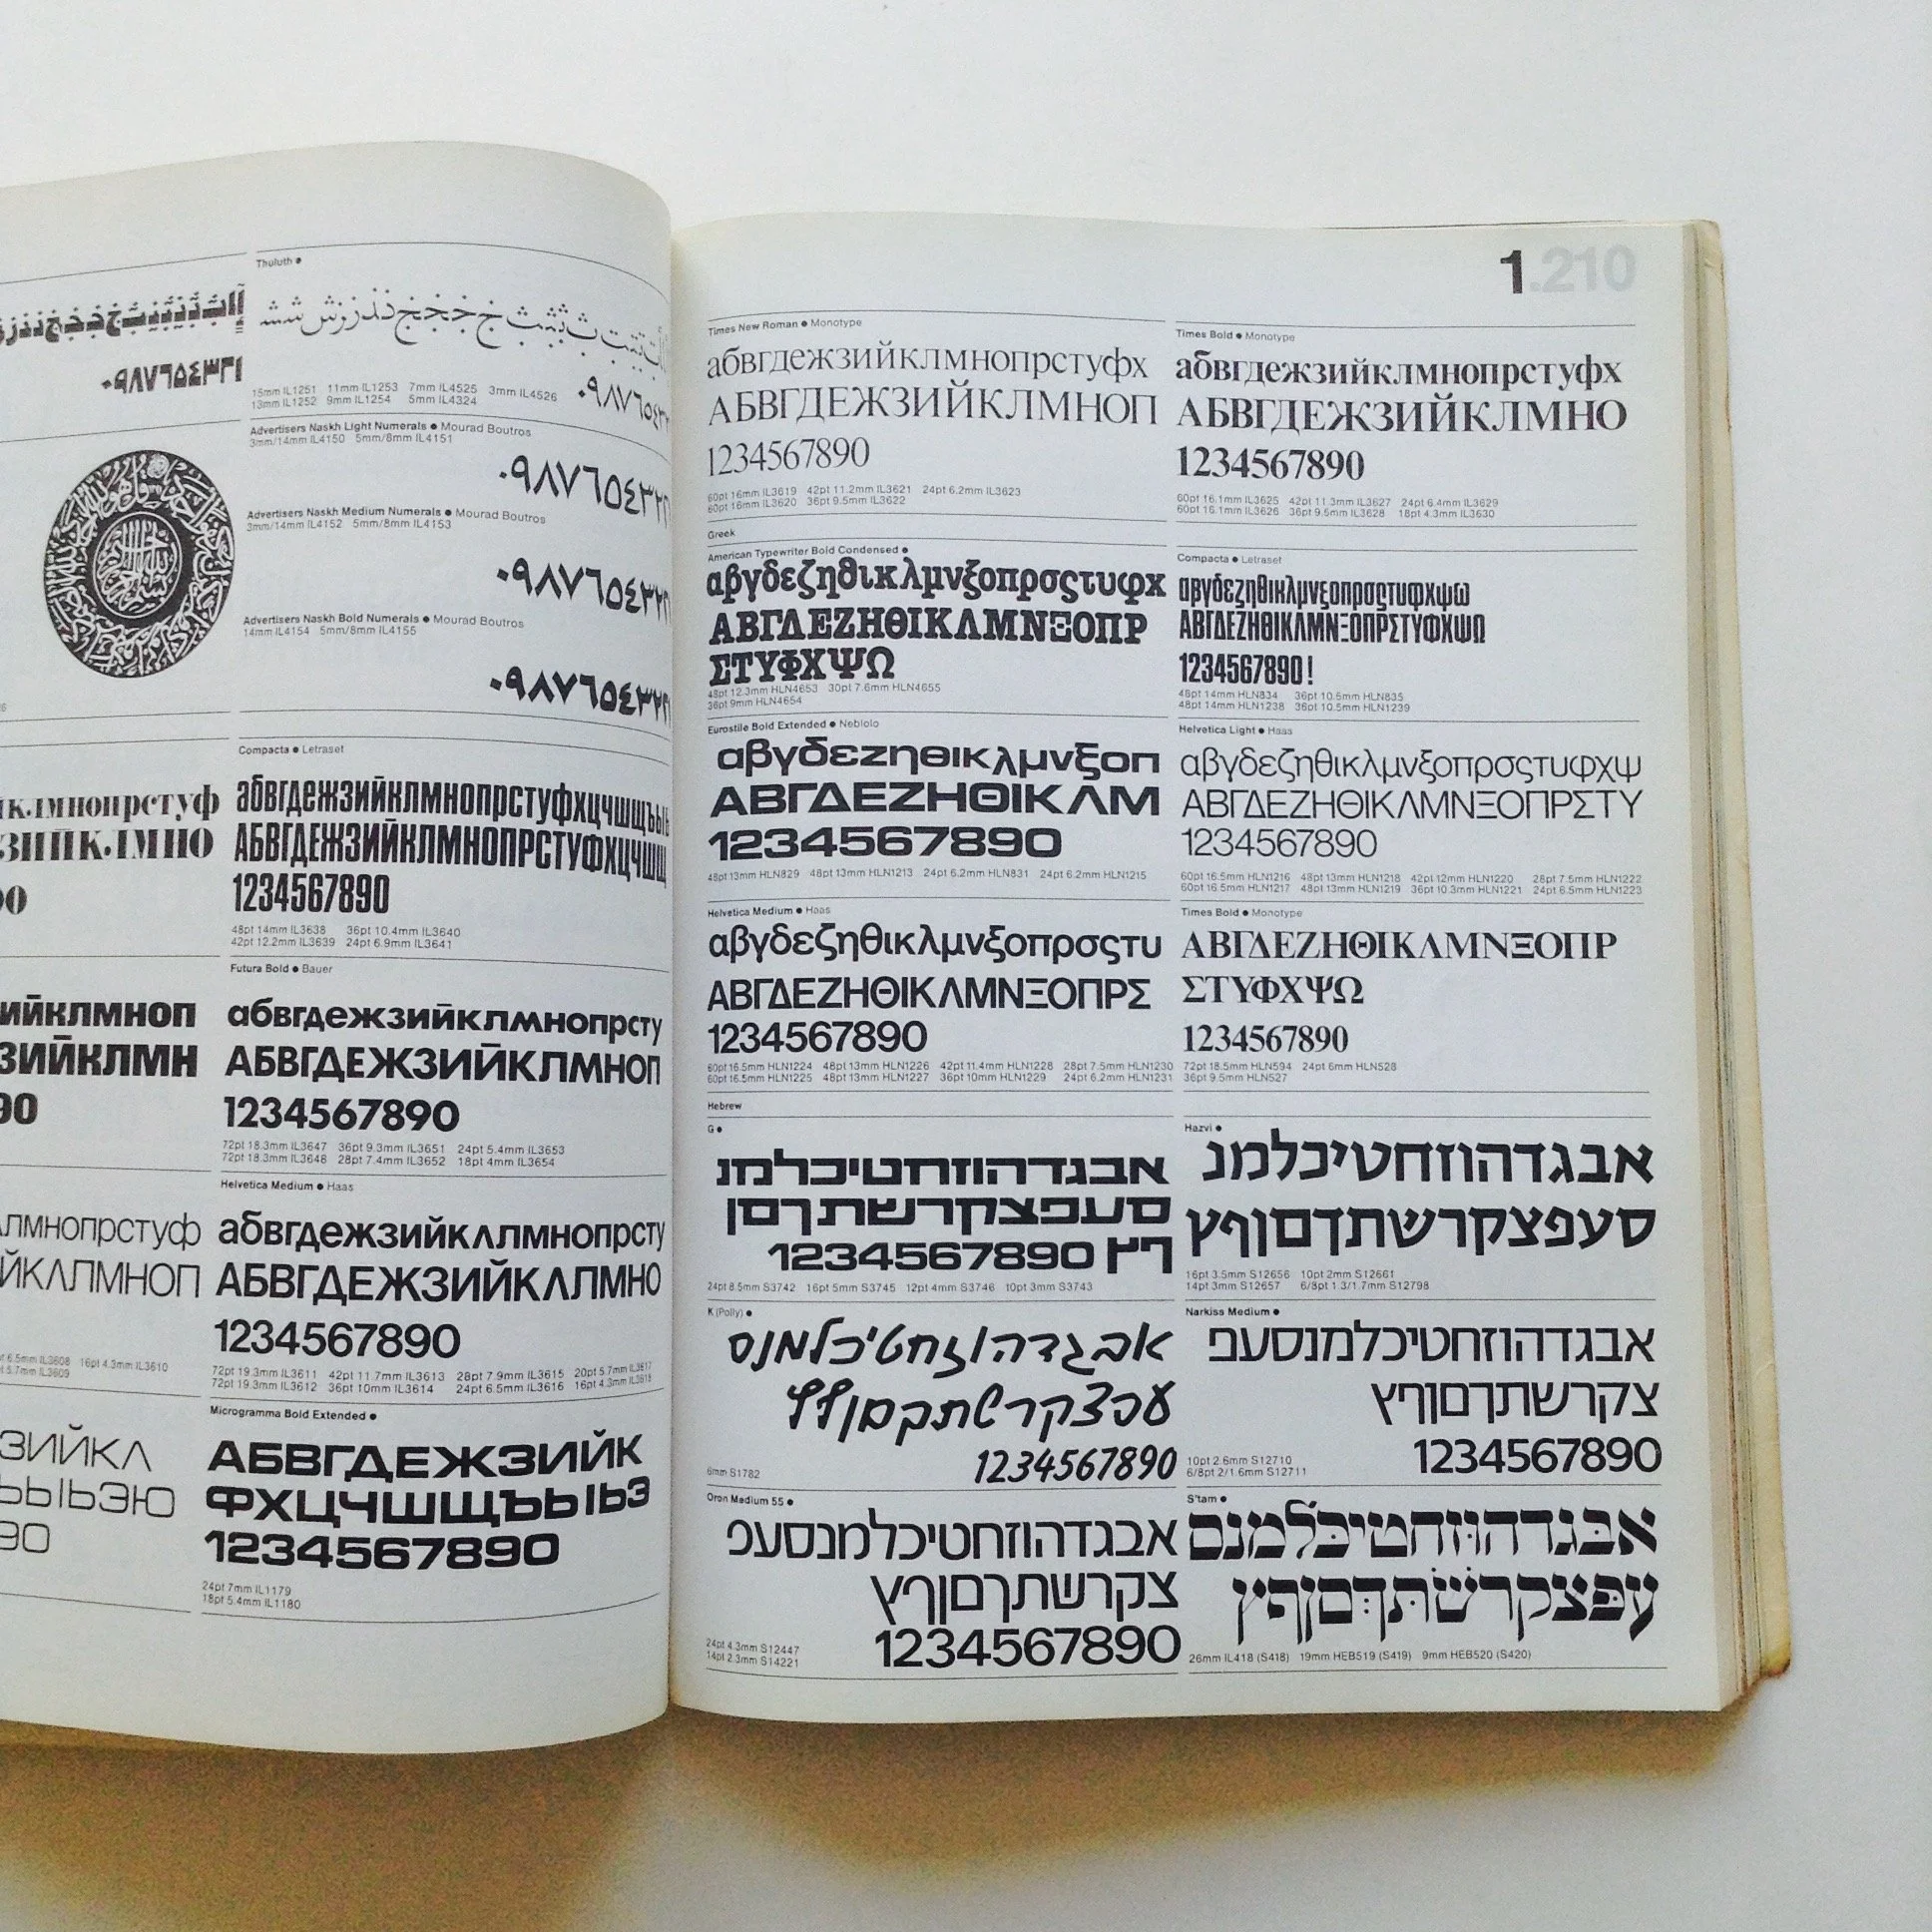 ٠٩٨٧٦٥٤٣٢١
Thuluth ●
15mm IL1251 11mm IL1253 7mm IL4525 3mm IL4526
13mm IL1252 9mm IL1254 5mm IL4324
٠٩٨٧٦٥٤٣٢
Advertisers Naskh Light Numerals ● Mourad Boutros
3mm/14mm IL4150 5mm/8mm IL4151
٠٩٨٧٦٥٤٣٢١
Advertisers Naskh Medium Numerals ● Mourad Boutros
3mm/14mm IL4152 5mm/8mm IL4153
٠٩٨٧٦٥٤٣٢١
Advertisers Naskh Bold Numerals ● Mourad Boutros
14mm IL4154 5mm/8mm IL4155
٠٩٨٧٦٥٤٣٢١
к.лмнопрстуф
ЗИЙКЛМНО
0
Compacta ● Letraset
абвгдежзийклмнопрстуфхцчшщъыь
АБВГДЕЖЗИЙКЛМНОПРСТУФХЦЧШЩ
1234567890
48pt 14mm IL3638 36pt 10.4mm IL3640
42pt 12.2mm IL3639 24pt 6.9mm IL3641
ийклмноп
ЗИЙКЛМН
90
Futura Bold ● Bauer
абвгдежзийклмнопрсту
АБВГДЕЖЗИЙКЛМНОП
1234567890
72pt 18.3mm IL3647 36pt 9.3mm IL3651 24pt 5.4mm IL3653
72pt 18.3mm IL3648 28pt 7.4mm IL3652 18pt 4mm IL3654
лмнопрстуф
ЙКЛПМНОП
6.5mm IL3608 16pt 4.3mm IL3610
5.7mm IL3609
Helvetica Medium ● Haas
абвгдежзийкʌлмнопрсту
АБВГДЕЖЗИЙКΛЛМНО
1234567890
72pt 19.3mm IL3611 42pt 11.7mm IL3613 28pt 7.9mm IL3615 20pt 5.7mm IL3617
72pt 19.3mm IL3612 36pt 10mm IL3614 24pt 6.5mm IL3616 16pt 4.3mm IL3618
ЗИЙКΛ
ЪЫЬЭЮ
90
Microgramma Bold Extended ●
АБВГДЕЖЗИЙК
ФХЦЧШЩЪЫЬЭ
1234567890
24pt 7mm IL1179
18pt 5.4mm IL1180
1.210
Times New Roman ● Monotype
абвгдежзийклмнопрстуфх
АБВГДЕЖЗИЙКЛМНОП
1234567890
60pt 16mm IL3619 42pt 11.2mm IL3621 24pt 6.2mm IL3623
60pt 16mm IL3620 36pt 9.5mm IL3622
Times Bold ● Monotype
абвгдежзийклмнопрстуфх
АБВГДЕЖЗИЙКЛМНО
1234567890
60pt 16.1mm IL3625 42pt 11.3mm IL3627 24pt 6.4mm IL3629
60pt 16.1mm IL3626 36pt 9.5mm IL3628 18pt 4.3mm IL3630
Greek
American Typewriter Bold Condensed ●
αβγδεζηθικλμνξοπρσςτυφχ
ΑΒΓΔΕΖΗΘΙΚΛΜΝΞΟΠΡ
ΣΤΥΦΧΨΩ
48pt 12.3mm HLN4653 30pt 7.6mm HLN4655
36pt 9mm HLN4654
Compacta ● Letraset
αβγδεζηθικλμνξοπροςτυφχψω
ΑΒΓΔΕΖΗΘΙΚΛΜΝΞΟΠΡΣΤΥΦΧΨΩ
1234567890!
48pt 14mm HLN834 36pt 10.5mm HLN835
48pt 14mm HLN1238 36pt 10.5mm HLN1239
Eurostile Bold Extended ● Nebiolo
αβγδεζηθικλμνξοπ
ΑΒΓΔΕΖΗΘΙΚΛΜ
1234567890
48pt 13mm HLN829 48pt 13mm HLN1213 24pt 6.2mm HLN831 24pt 6.2mm HLN1215
Helvetica Light ● Haas
αβγδεζηθικλμνξοπροςτυφχψ
ΑΒΓΔΕΖΗΘΙΚΛΜΝΞΟΠΡΣΤΥ
1234567890
60pt 16.5mm HLN1216 48pt 13mm HLN1218 42pt 12mm HLN1220 28pt 7.5mm HLN1222
60pt 16.5mm HLN1217 48pt 13mm HLN1219 36pt 10.3mm HLN1221 24pt 6.5mm HLN1223
Helvetica Medium ● Haas
αβγδεζηθικλμνξοπρσςτυ
ΑΒΓΔΕΖΗΘΙΚΛΜΝΞΟΠΡΣ
1234567890
60pt 16.5mm HLN1224 48pt 13mm HLN1226 42pt 11.4mm HLN1228 28pt 7.5mm HLN1230
60pt 16.5mm HLN1225 48pt 13mm HLN1227 36pt 10mm HLN1229 24pt 6.2mm HLN1231
Times Bold ● Monotype
ΑΒΓΔΕΖΗΘΙΚΛΜΝΞΟΠΡ
ΣΤΥΦΧΨΩ
1234567890
72pt 18.5mm HLN594 24pt 6mm HLN528
36pt 9.5mm HLN527
Hebrew
G ●
אבגדהוזחטיכלמנ
סעפצקרשתךםן
ףץ 1234567890
24pt 8.5mm S3742 16pt 5mm S3745 12pt 4mm S3746 10pt 3mm S3743
Hazvi ●
אבגדהוזחטיכלמנ
סעפצקרשתךםןףץ
16pt 3.5mm S12656 10pt 2mm S12661
14pt 3mm S12657 6/8pt 1.3/1.7mm S12798
K (Polly) ●
אבגדהוזחטיכלמנס
עפצקרשתךםןףץ
1234567890
6mm S1782
Narkiss Medium ●
אבגדהוזחטיכלמנסעפ
צקרשתךםןףץ
1234567890
10pt 2.6mm S12710
6/8pt 2/1.6mm S12711
Oron Medium 55 ●
אבגדהוזחטיכלמנסעפ
צקרשתךםןףץ
1234567890
24pt 4.3mm S12447
14pt 2.3mm S14221
S'tam ●
אבּגדהוּזחטיכּלמנס
עפּצקרשׁתּךּםןףץ
26mm IL418 (S418) 19mm HEB519 (S419) 9mm HEB520 (S420)